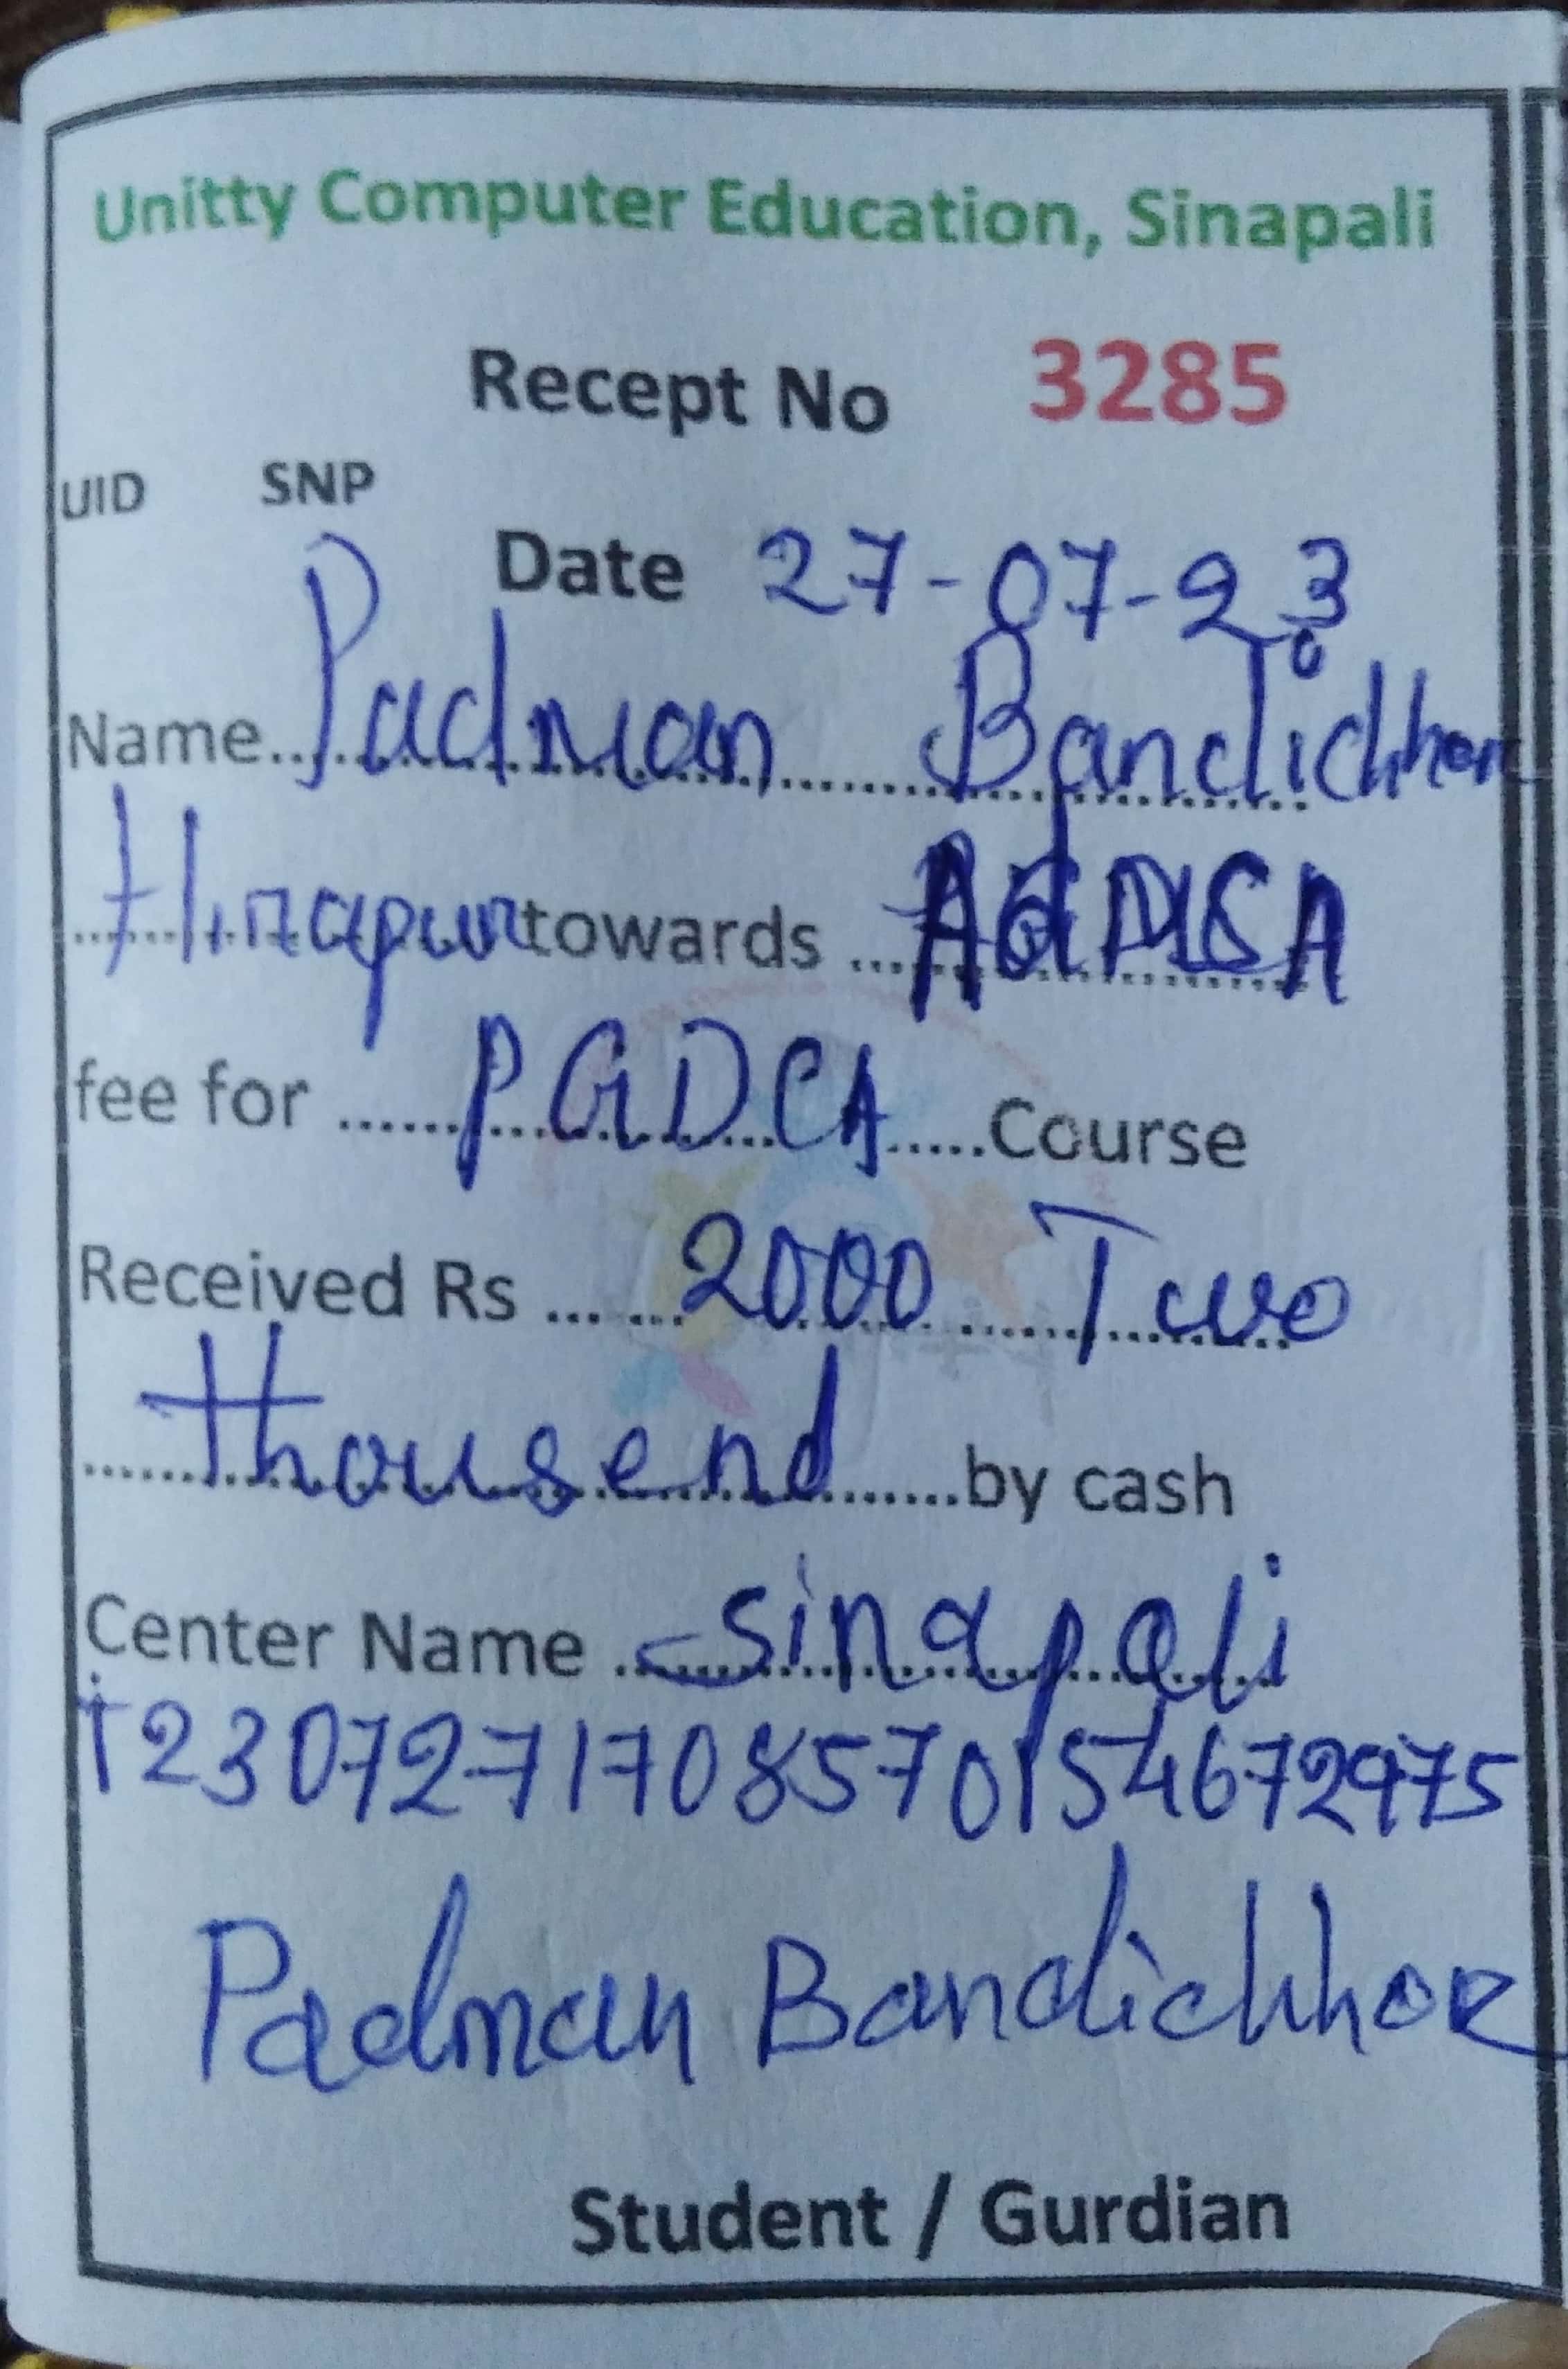 Unitty Computer Education, Sinapali
Recept No 3285
UID SNP
Date 27-07-23
Name.......Padman.......Bandichhor
.......Hirapur towards ...
fee for ......PGDCA......Course
Received Rs ... ...2000 ......Two
.......thousend.......by cash
Center Name ...Sinapali
T2307271708570154672975
Padman Bandichhor
Student / Gurdian